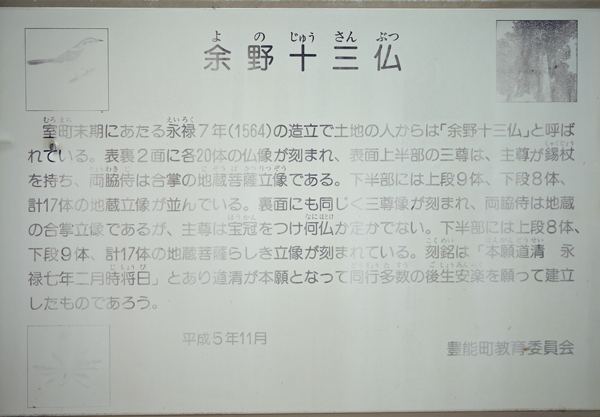 よ の じゅう さん ぶつ
余野十三仏
むろ まち えいろく
室町末期にあたる永禄7年(1564)の造立で土地の人からは「余野十三仏」と呼ば
れている。表裏2面に各20体の仏像が刻まれ、表面上半部の三尊は、主尊が錫杖
を持ち、両脇侍は合掌の地蔵菩薩立像である。下半部には上段9体、下段8体、
計17体の地蔵立像が並んでいる。裏面にも同じく三尊像が刻まれ、両脇侍は地蔵
ほうかん なにほとけ
の合掌立像であるが、主尊は宝冠をつけ何仏か定かでない。下半部には上段8体、
下段9体、計17体の地蔵菩薩らしき立像が刻まれている。刻銘は「本願道清 永
禄七年二月時将日」とあり道清が本願となって同行多数の後生安楽を願って建立
したものであろう。
平成5年11月
豊能町教育委員会